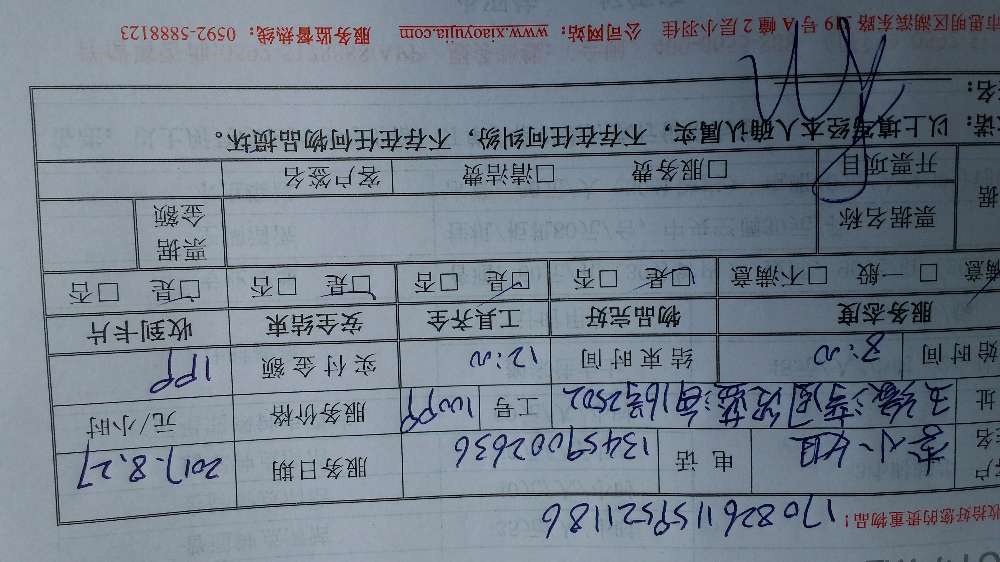 收拾好您的贵重物品！ 17082611595211186
户名 李小姐 电话 13459002636 服务日期 2017.8.27
址 工号 服务价格 元/小时
始时间 8:00 结束时间 12:00 实付金额
服务态度 物品完好 工具齐全 安全结束 收到卡片
满意 □一般 □不满意 □是 □否 □是 □否 □是 □否 □是 □否
据 票据名称 票据金额
开票项目 □服务费 □清洁费 客户签名
诺：以上填写经本人确认属实，不存在任何纠纷，不存在任何物品损坏。
名：
市思明区湖滨东路 号A幢2层小羽佳 公司网站：www.xiaoyujia.com 服务监督热线：0592-5888123